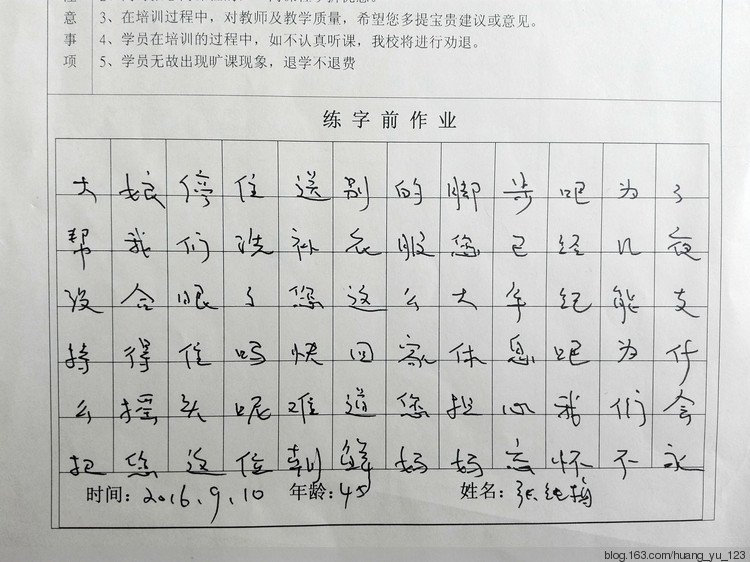 意 3、在培训过程中，对教师及教学质量，希望您多提宝贵建议或意见。
事 4、学员在培训的过程中，如不认真听课，我校将进行劝退。
项 5、学员无故出现旷课现象，退学不退费
练字前作业
大娘停住送别的脚步吧为了
帮我们洗补衣服您已经几夜
没合眼了您这么大年纪能支
持得住吗快回家休息吧为什
么摇头呢难道您担心我们会
把您这位朝鲜妈妈忘怀不永
时间：2016.9.10 年龄：45 姓名：张
blog.163.com/huang_yu_123